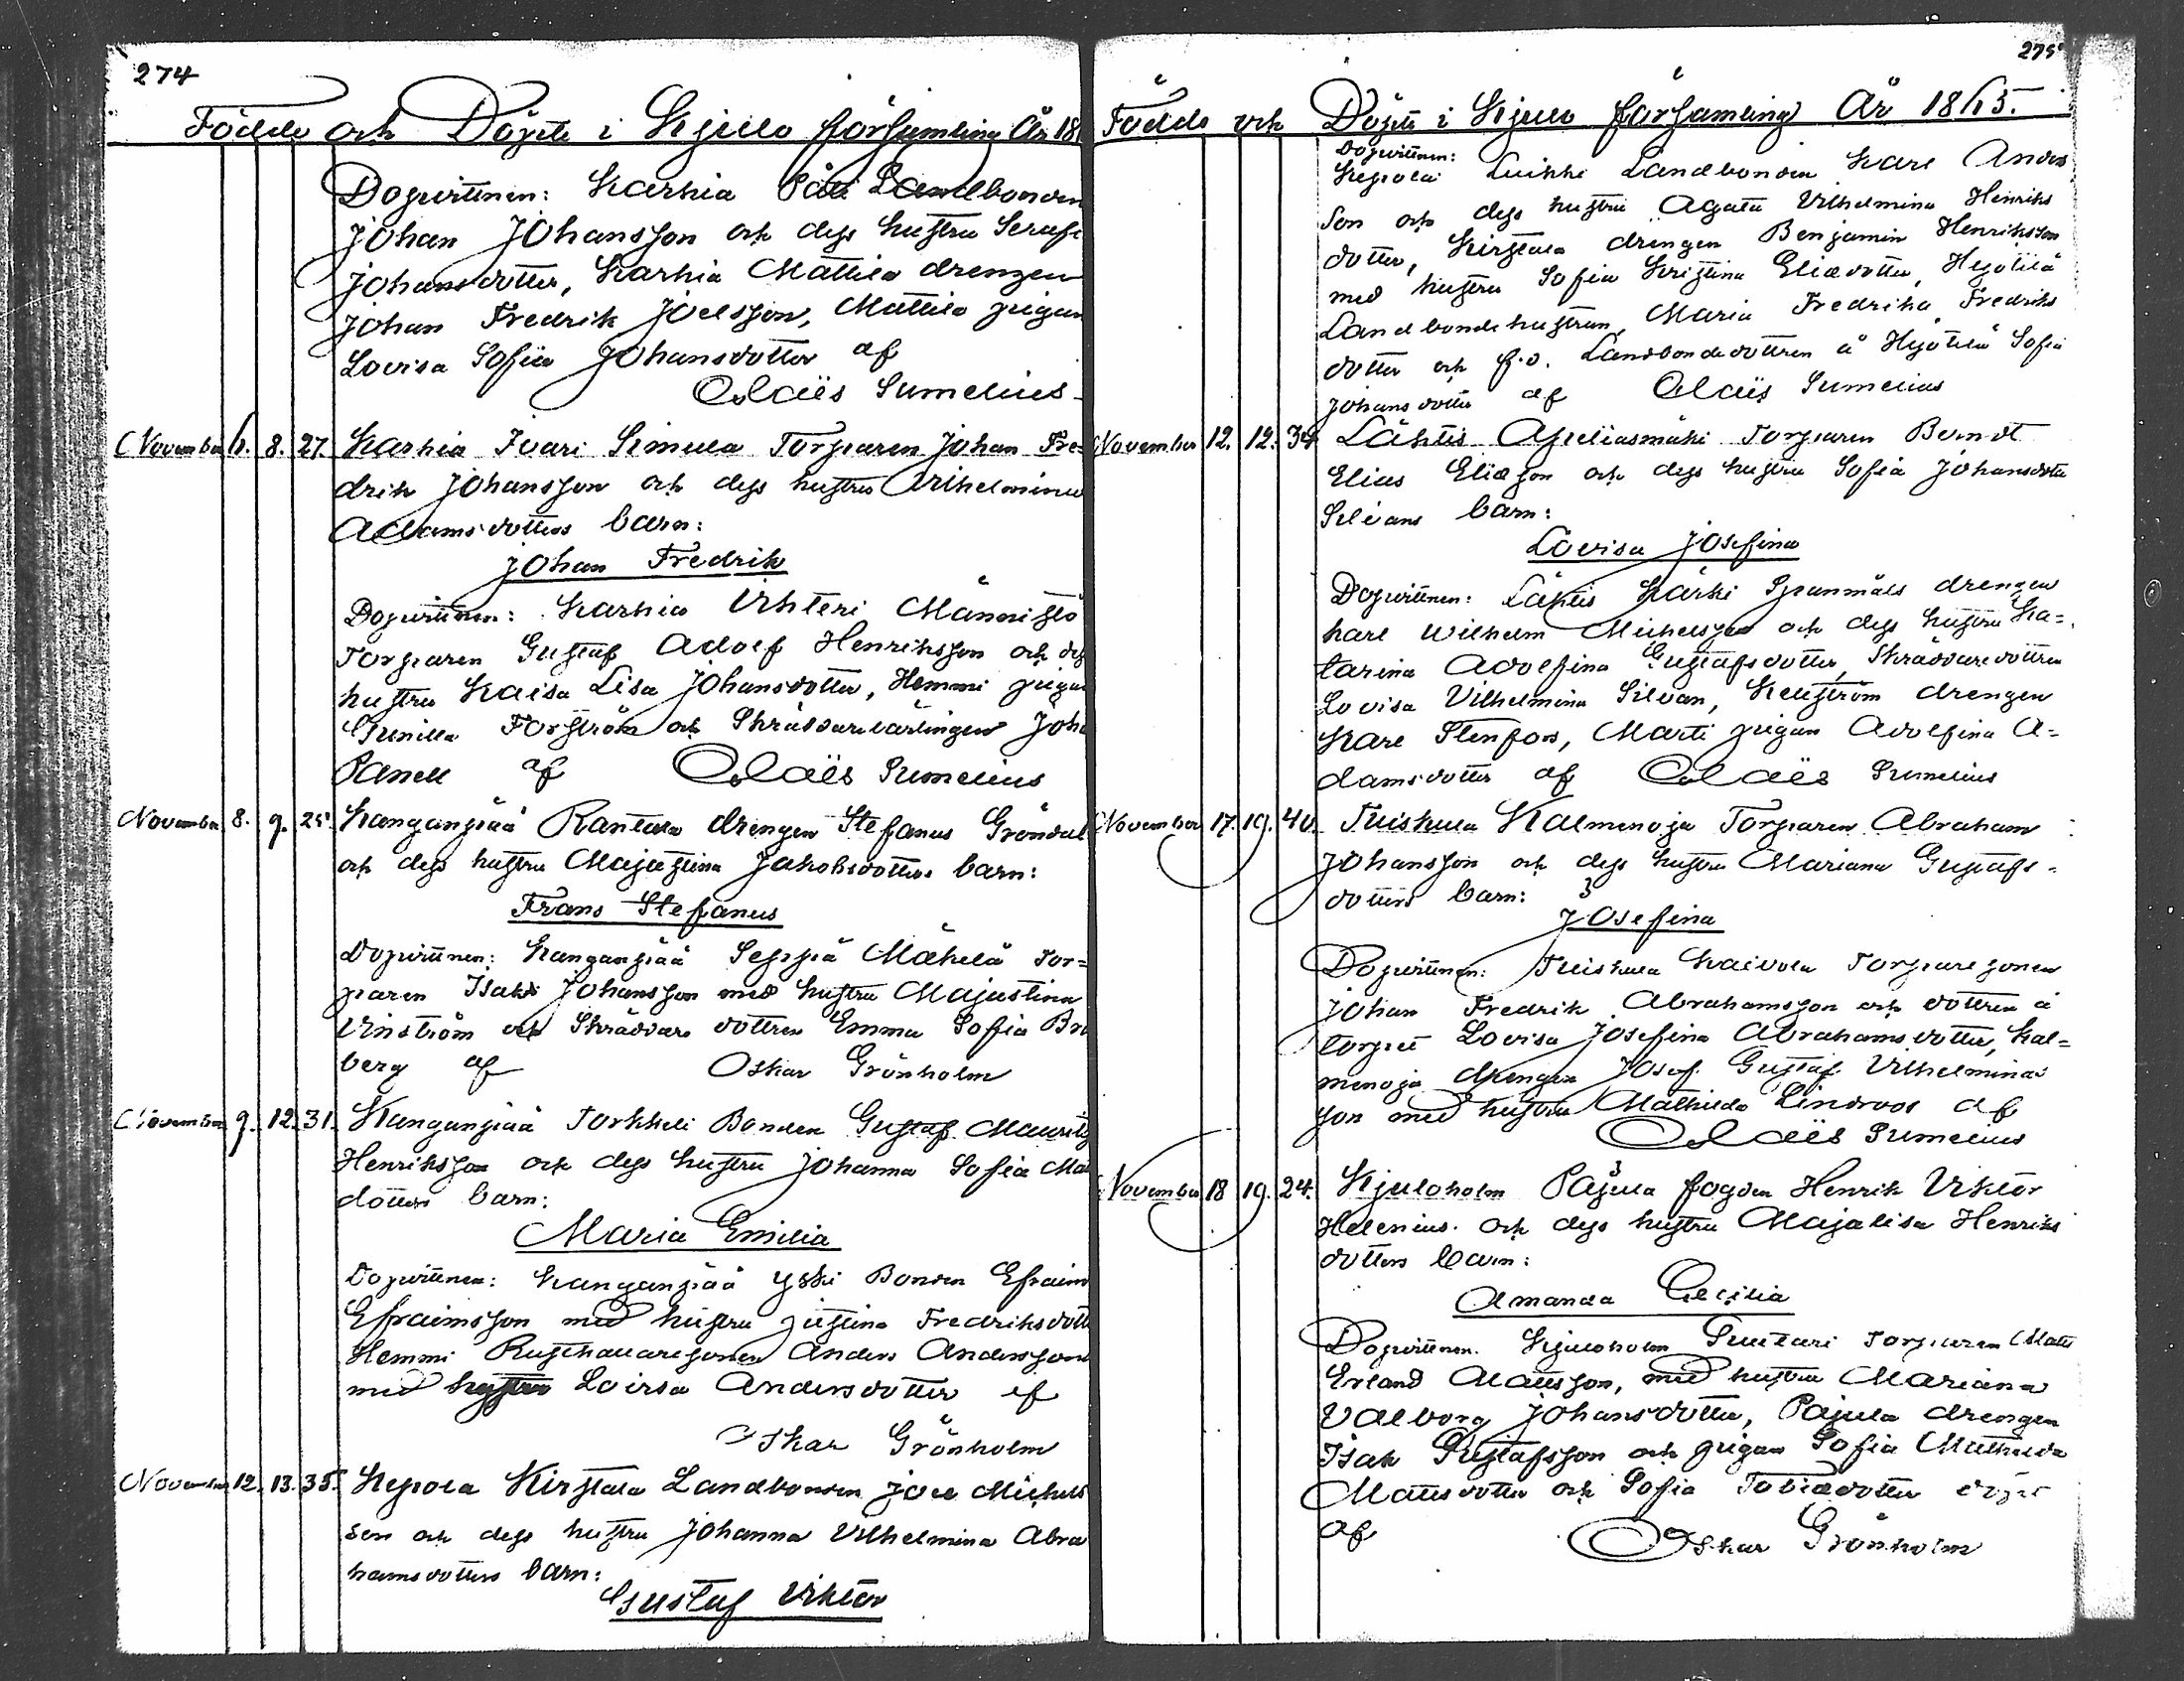 274
Födde och Döpte i Kjulo församling År 18
Dopvittnen: Karhia Päli Landbonden
Johan Johansson och dess hustru Seraf
Johansdotter, Karhia Mattila drengen
Johan Fredrik Joelsson, Mattila pigan
Lovisa Sofia Johansdotter af
Claës Sumelius
November 6. 8. 27. Karhia Juari Simula Torparen Johan Fre=
drik Johansson och dess hustru Vilhelmina
Adamsdotters barn:
Johan Fredrik
Dopvittnen: Karhia Vihteri Männistö
Torparen Gustaf Adolf Henriksson och dess
hustru Kaisa Lisa Johansdotter, Hemmi pigan
Gunilla Forström och Skräddarelärlingen Joha
Panell af Claës Sumelius
November 8. 9. 25. Kanganpää Rantala drengen Stefanus Gröndal
och dess hustru Majastina Jakobsdotters barn:
Frans Stefanus
Dopvittnen: Kanganpää Seppä Mäkelä Tor=
paren Isak Johansson med hustru Majastina
Vinström och Skräddare dottren Emma Sofia
berg af Oskar Grönholm
November 9. 12. 31. Kanganpää Torkkeli Bonden Gustaf Mauritz
Henriksson och dess hustru Johanna Sofia Mat
dotters barn:
Maria Emilia
Dopvittnen: Kanganpää Yski Bonden Efraim
Efraimsson med hustru Justina Fredriksdott
Hemmi Rusthållaresonen Anders Andersson
med hustru Lovisa Andersdotter af
Oskar Grönholm
November 12. 13. 35. Kepola Kirstala Landbonden Joel Michels
son och dess hustru Johanna Vilhelmina Abra
hamsdotters barn:
Gustaf Viktor
275
Födde och Döpte i Kjulo församling År 1865.
Dopvittnen:
Kepola Luikki Landbonden Karl Anders
son och dess hustru Agata Vilhelmina Henriks
dotter, Kirstala drengen Benjamin Henriksson
med hustru Sofia Kristina Eliædotter, Hejötilä
Landbondehustrun, Maria Fredrika Fredriks
dotter och f.d. Landbondedottren å Hejötilä Sofia
Johansdotter af Claës Sumelius
November 12. 12. 34. Lähtis Apeliasmäki Torparen Berndt
Elias Eliæson och dess hustru Sofia Johansdotter
Silvans barn:
Lovisa Josefina
Dopvittnen: Lähtis Kärki Spanmåls drengen
Karl Wilhelm Michelsson och dess hustru Ka=
tarina Adolfina Gustafsdotter, Skräddaredottren
Lovisa Vilhelmina Silvan, drengen
Karl Stenfors, Marti pigan Adolfina A=
damsdotter af Claës Sumelius
November 17. 19. 40. Tuiskula Kalmenoja Torparen Abraham
Johansson och dess hustru Mariana Gustafs=
dotters barn:
Josefina
Dopvittnen: Tuiskula Kaivola Torparesonen
Johan Fredrik Abrahamsson och dottren å
torpet Lovisa Josefina Abrahamsdotter, Kal=
menoja drengen Josef Gustaf Vilhelminas
son med hustru Mathilda Lindroos af
Claës Sumelius
November 18 19. 24. Kjuloholm Pajula fogden Henrik Viktor
Helenius och dess hustru Majalisa Henriks
dotters barn:
Amanda Cecilia
Dopvittnen. Kjuloholm Torparen Matts
Erland Mattsson, med hustru Mariana
Valborg Johansdotter, Pajula drengen
Isak Gustafsson och pigan Sofia Mathilda
Mattsdotter och Sofia Tobiædotter döpt
af Oskar Grönholm